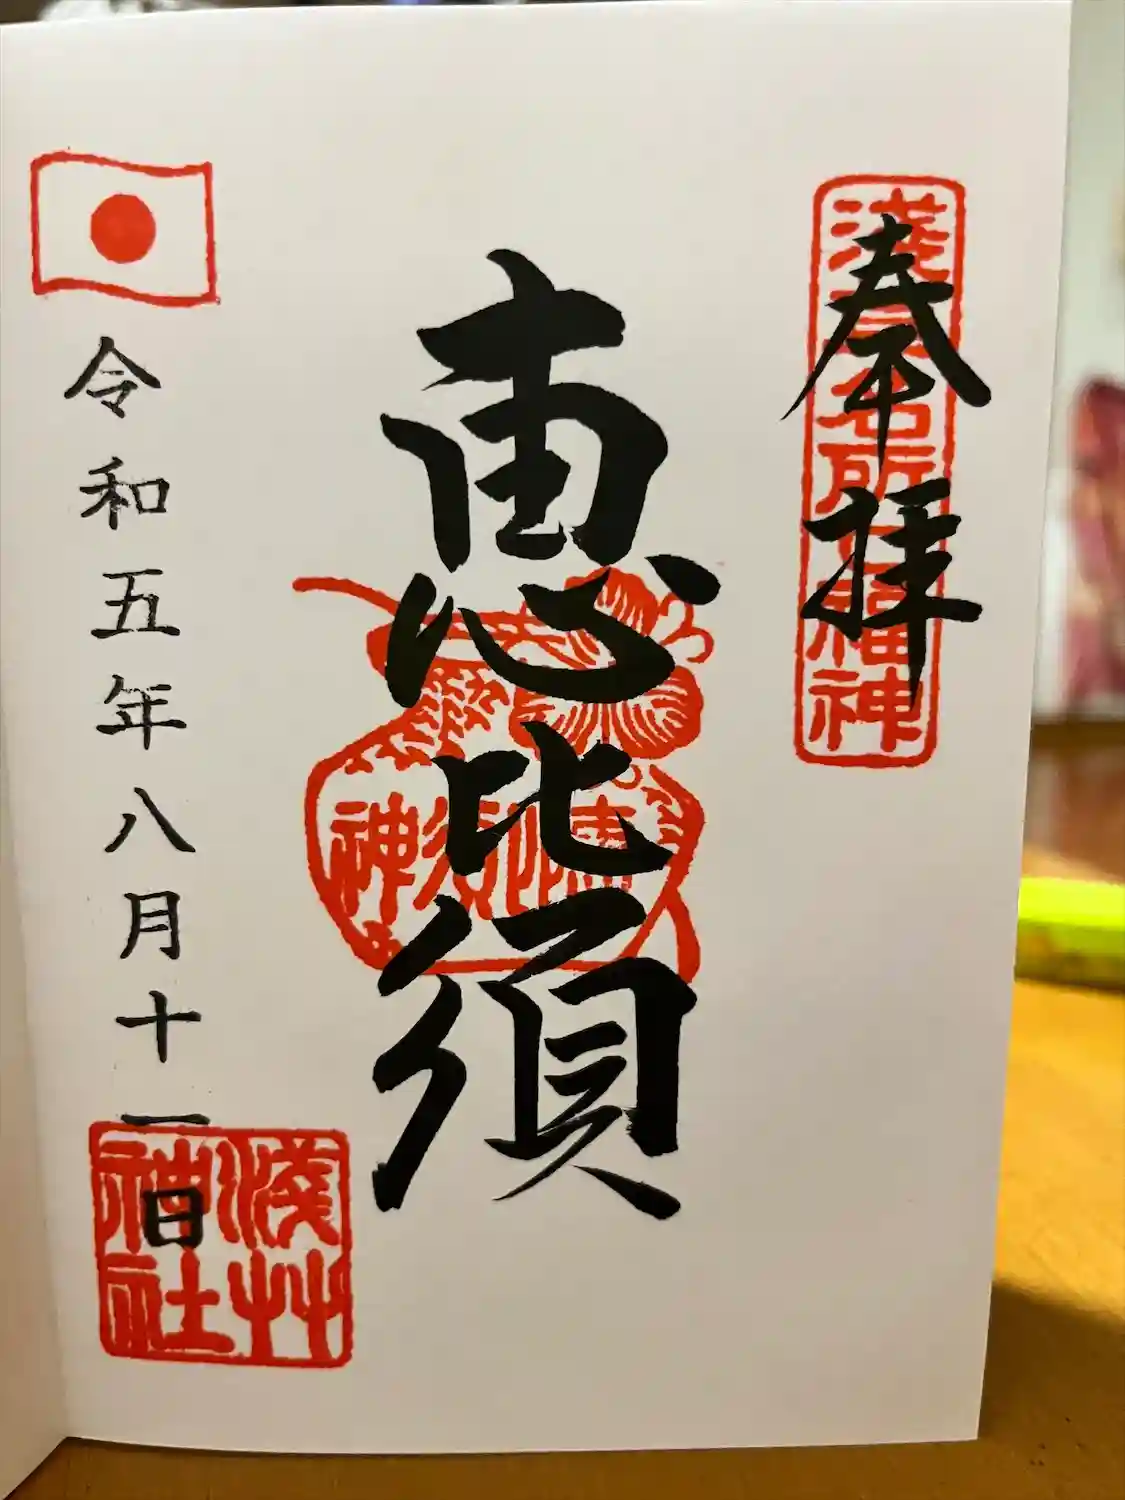 奉拝
浅草名所七福神
恵比須
恵比須神
令和五年八月十一日
淺艸神社